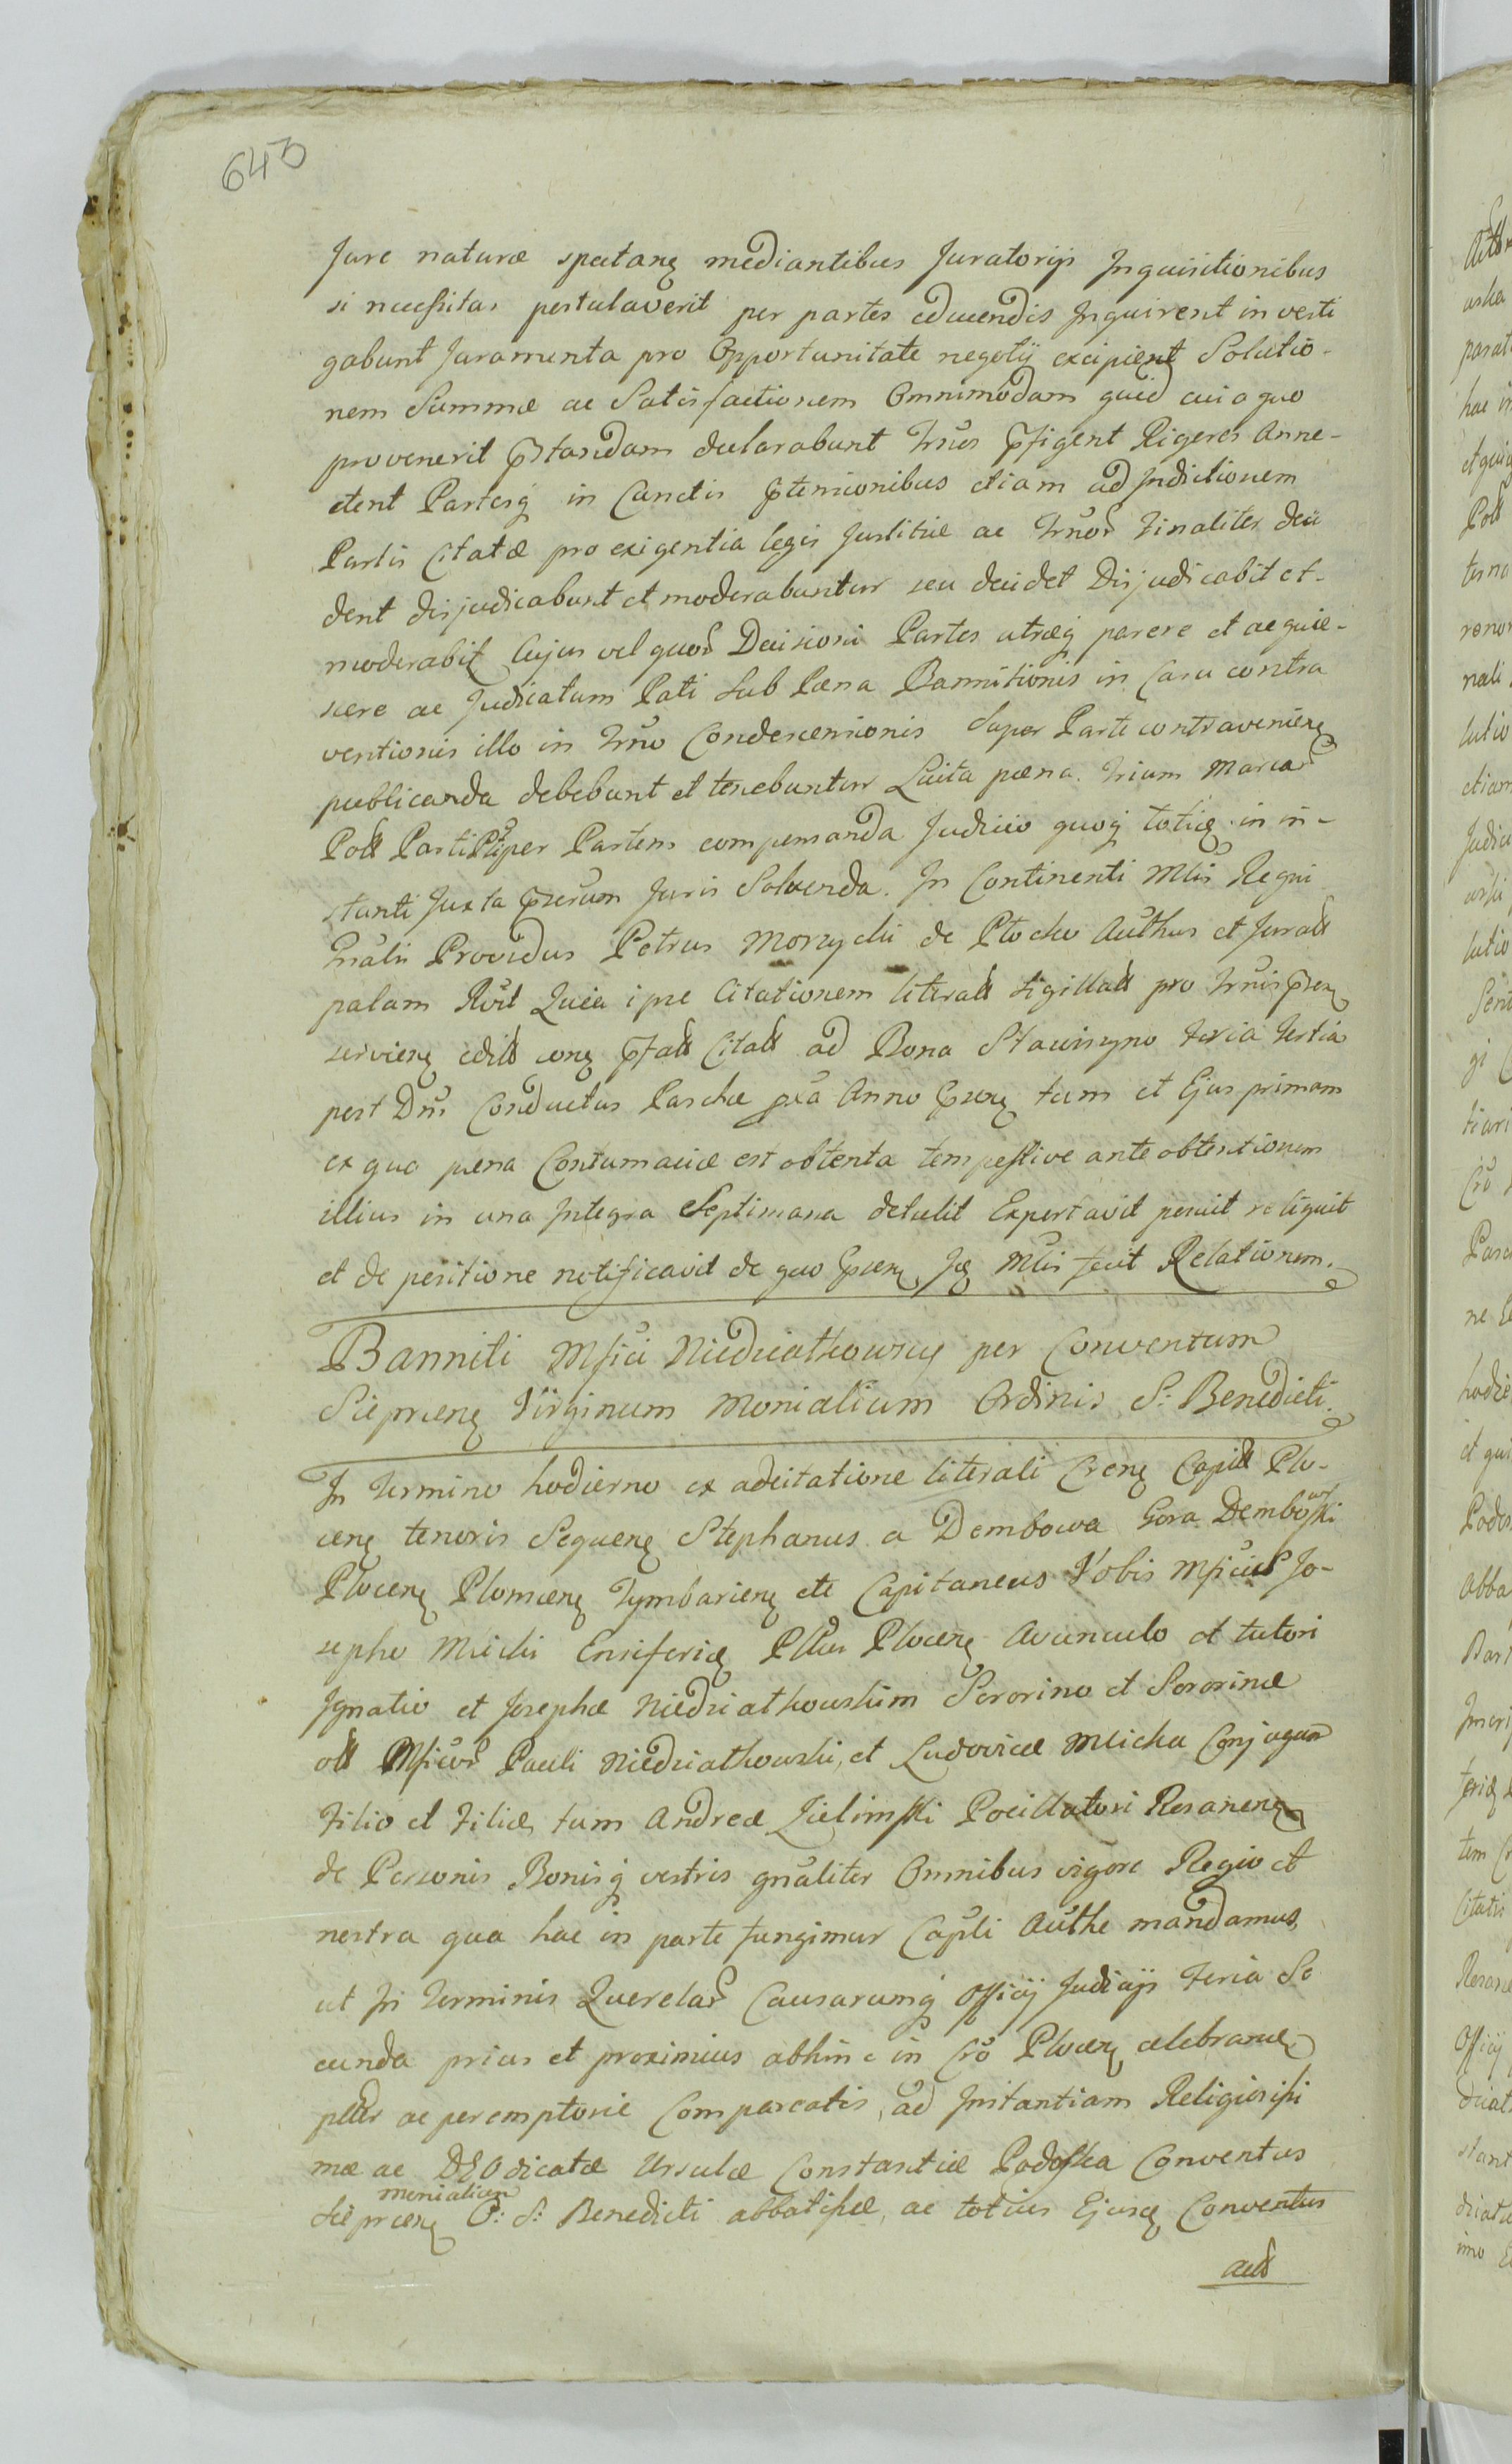 643
Jure naturæ spectanȩ mediantibus Juratorijs Inquisitionibus
si necessitas postulaverit per partes educendis Inquirent investi
gabunt Juramenta pro Opportunitate negotij excipient Solutio-
nem Summæ ac Satisfactionem Omnimodam quid cui a quo
provenerit p̄standam declarabunt Trn̄os p̄figent Rigores Anne-
ctent Partesq̨ in Cunctis p̄tensionibus etiam ad Indictionem
Partis Citatæ pro exigentia legis Justitiæ ac Trn̄oꝝ finaliter deci
dent disjudicabunt et moderabuntur seu decidet Disjudicabit et
moderabit Cujus vel quoꝝ Decisioni Partes utræq̨ parere et acquie-
scere ac Judicatum Pati sub Pæna Bannitionis in Casu contra
ventionis illo in Trn̄o Condescensionis super Parte contravenienȩ
publicanda debebunt et tenebuntur Luita pæna trium Marcaꝝ
Poll Parti per Partem compensanda Judicio quoq̨ toties in in-
stanti Juxta p̄scrum Juris Solvenda. In Continenti Mlīs Regni
Gn̄alis Providus Petrus Morzycki de Płocko Auth̄us et Juratt
palam Rvit Quia ipse Citationem literatt sigillatt pro Trn̄is p̄senȩ
servienȩ editt conȩ p̄fatt Citatt ad Bona Stawiszyno feria tertia
post Dn̄s Conductus Paschæ px̄a Anno p̄senȩ tum et Ejus primam
ex quo pæna Contumaciæ est obtenta tempestive ante obtentionem
illius in una Integra Septimana detulit Exportavit posuit reliquit
et de positione notificavit de quo p̄senȩ Jȩ Mlīs fecit Relationem.
Banniti Mf̄ici Niedziałkowscy per Conventum
Sieprcenȩ Virginum Monialium Ordinis S: Benedicti.
In Termino hodierno ex adcitatione literali Crenȩ Capitt Plo-
cenȩ tenoris Sequenȩ Stephanus a Dembowa Gora Dembowski
Plocenȩ Plonscenȩ Tymbarienȩ etc Capitaneus Vobis Mf̄icis Jo-
sepho Mlicki Ensiferiȩ Pttus Plocenȩ Avunculo et tutori
Ignatio et Josephæ Niedziałkowskim Sororino et Sororinæ
ott Mf̄icoꝝ Pauli Niedziałkowski, et Ludovicæ Mlicka Conjugum
Filio et Filiæ, tum Andreæ Zielinski Pocillatori Rosanenȩ
de Personis Bonisq̨ vestris gn̄aliter Omnibus vigore Regio et
nostra qua hac in parte fungimur Cap̄li Auth̄e mandamus,
ut In Terminis Querelaꝝ Causarumq̨ Officij Judicijs Feria Se
cunda prius et proximius abhinc in Crō Plocenȩ celebranȩ
pttr ac peremptorie Compareatis, ad Instantiam Religiosissi
mæ ac DEO dicatæ Ursulæ Constantiæ Podoska Conventus
Sieprcenȩ monialium O: S: Benedicti abbatissæ, ac totius Ejusȩ Conventus
actt